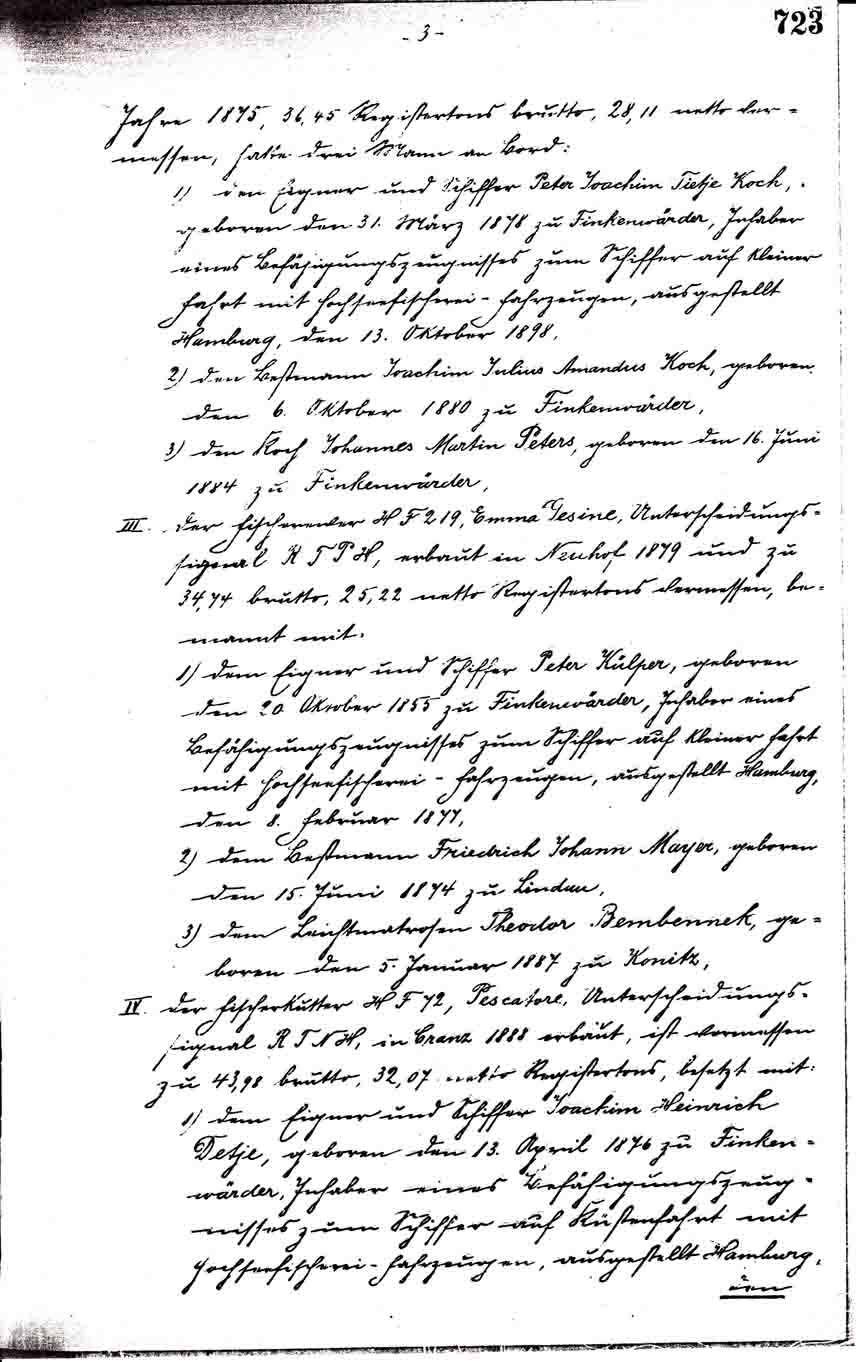 723
- 3 -
Jahre 1875, 36,45 Registertons brutto, 28,11 netto ver=
messen, hatte drei Mann an Bord:
1) den Eigner und Schiffer Peter Joachim Tietje Koch,
geboren den 31. März 1878 zu Finkenwärder, Inhaber
eines Befähigungszeugnisses zum Schiffer auf kleiner
Fahrt mit Hochseefischerei-Fahrzeugen, ausgestellt
Hamburg, den 13. Oktober 1898,
2) den Bestmann Joachim Julius Amandus Koch, geboren
den 6. Oktober 1880 zu Finkenwärder,
3) den Koch Johannes Martin Peters, geboren den 16. Juni
1884 zu Finkenwärder,
III. der Fischerewer H F 219, Emma Gesine, Unterscheidungs=
signal R T P H, erbaut in Neuhof 1879 und zu
34,74 brutto, 25,22 netto Registertons vermessen, be=
mannt mit.
1) dem Eigner und Schiffer Peter Külper, geboren
den 20. Oktober 1855 zu Finkenwärder, Inhaber eines
Befähigungszeugnisses zum Schiffer auf kleiner Fahrt
mit Hochseefischerei-Fahrzeugen, ausgestellt Hamburg,
den 8. Februar 1877,
2) dem Bestmann Friedrich Johann Mayer, geboren
den 15. Juni 1874 zu Lindau,
3) dem Leichtmatrosen Theodor Bembennek, ge=
boren den 5. Januar 1887 zu Konitz,
IV. der Fischerkutter H F 72, Pescatore, Unterscheidungs=
signal R T N H, in Cranz 1888 erbaut, ist vermessen
zu 43,98 brutto, 32,07 netto Registertons, besetzt mit:
1) dem Eigner und Schiffer Joachim Heinrich
Detje, geboren den 13. April 1876 zu Finken=
wärder, Inhaber eines Befähigungszeug=
nisses zum Schiffer auf Küstenfahrt mit
Hochseefischerei-Fahrzeugen, ausgestellt Hamburg,
den